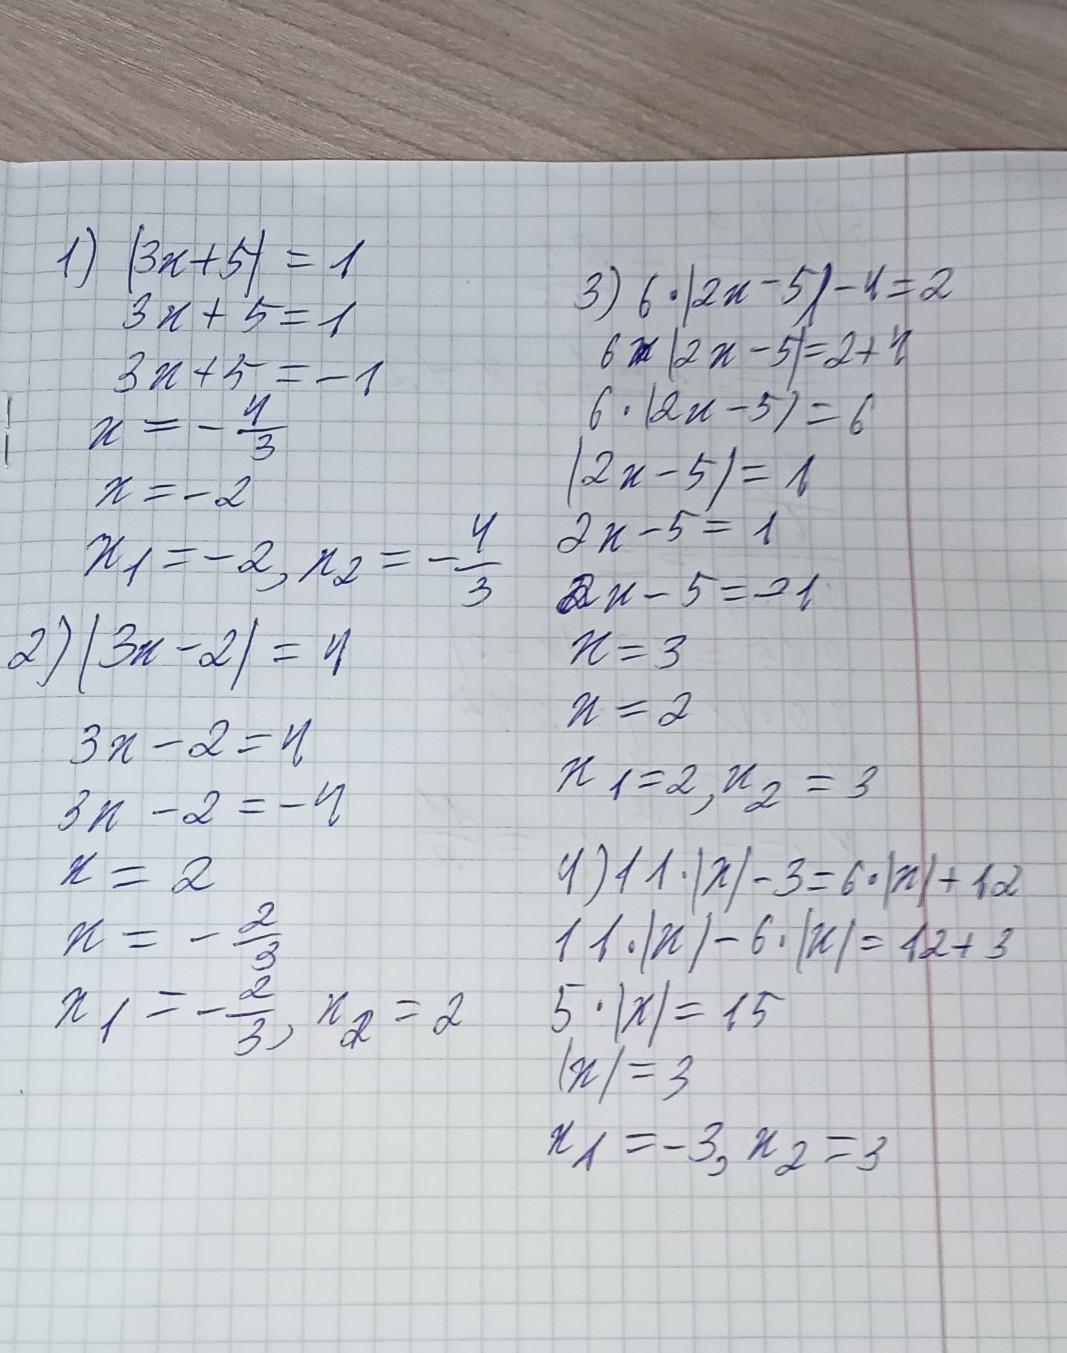 1) |3x+5| = 1
3x + 5 = 1
3x+5 = -1
x = -4/3
x = -2
x1 = -2, x2 = -4/3
2) |3x-2| = 4
3x - 2 = 4
3x - 2 = -4
x = 2
x = -2/3
x1 = -2/3, x2 = 2
3) 6·|2x-5|-4=2
6 |2x-5|=2+4
6·|2x-5|=6
|2x-5|=1
2x-5=1
2x-5=-1
x=3
x=2
x1=2, x2=3
4) 11·|x|-3=6·|x|+12
11·|x|-6·|x|=12+3
5·|x|=15
|x|=3
x1=-3, x2=3